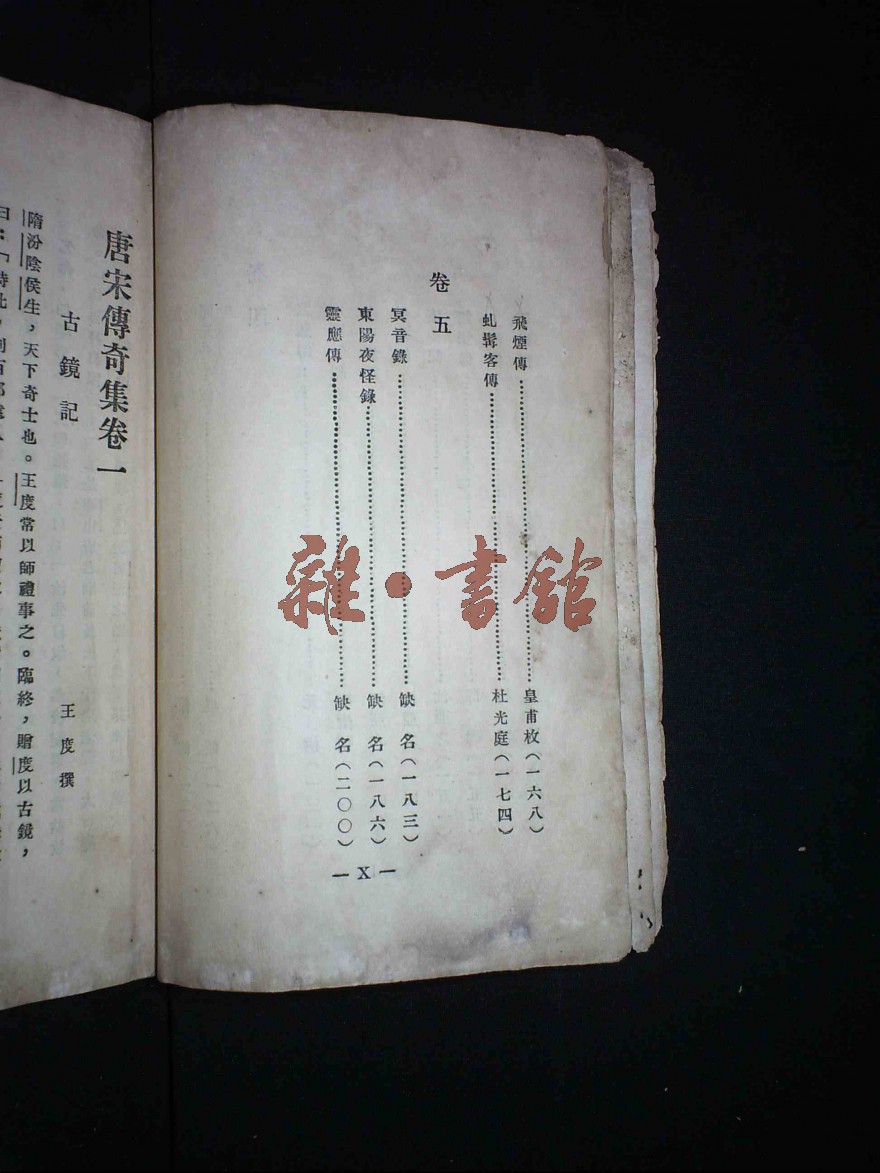 飛煙傳……………………皇甫枚(一六八)
虬髯客傳……………………杜光庭(一七四)
卷五
冥音錄……………………缺名(一八三)
東陽夜怪錄……………………缺名(一八六)
靈應傳……………………缺名(二〇〇)
— X —
唐宋傳奇集卷一
古鏡記 王度撰
隋汾陰侯生,天下奇士也。王度常以師禮事之。臨終,贈度以古鏡,
曰:「持此,則百邪
雜·書館